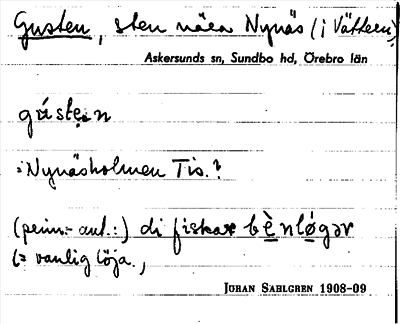 Gusten, sten nära Nynäs (i Vättern)
Askersunds sn, Sundbo hd, Örebro län
gústen
= Nynäsholmen Tis.?
di fiskar bènlǿgər
(= vanlig löja.,
JOHAN SAHLGREN 1908-09